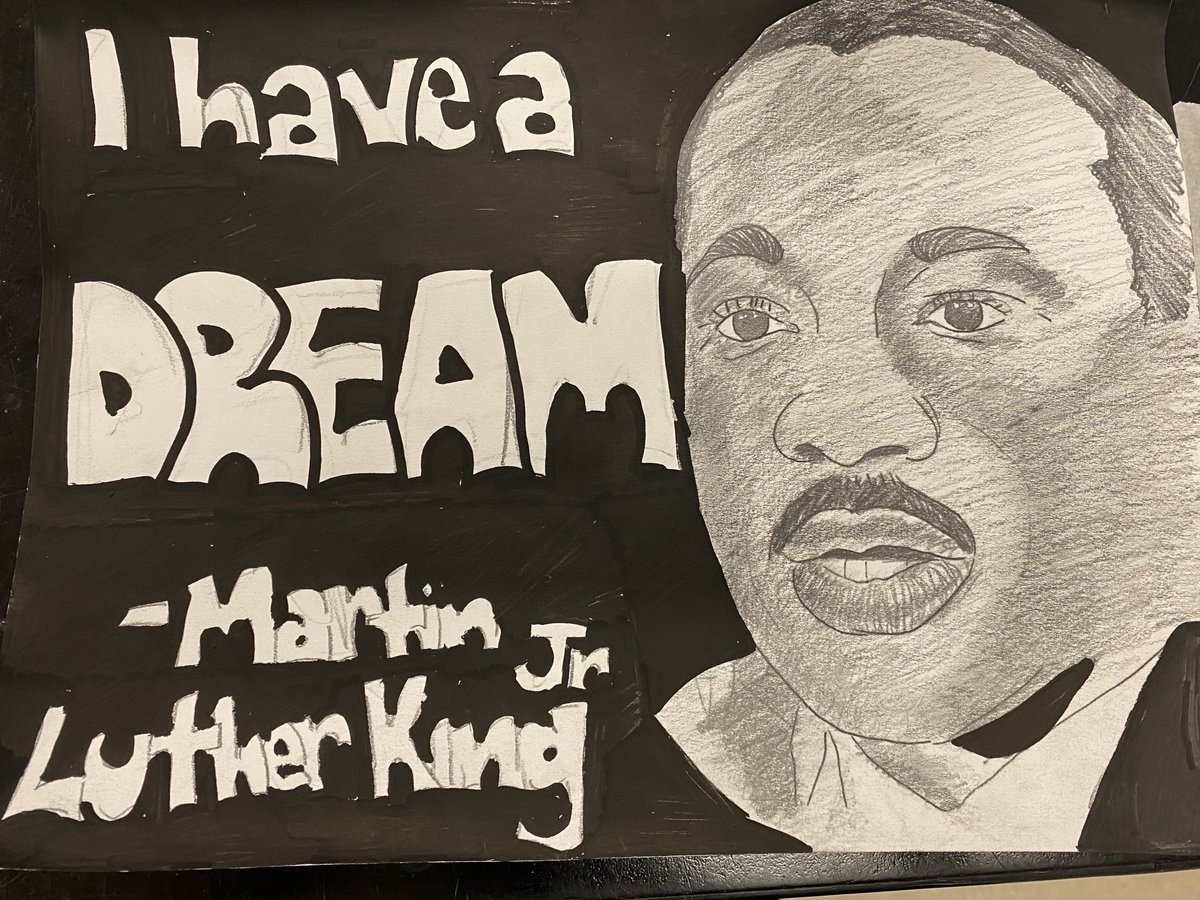 I have a
DREAM
- Martin
Luther King Jr